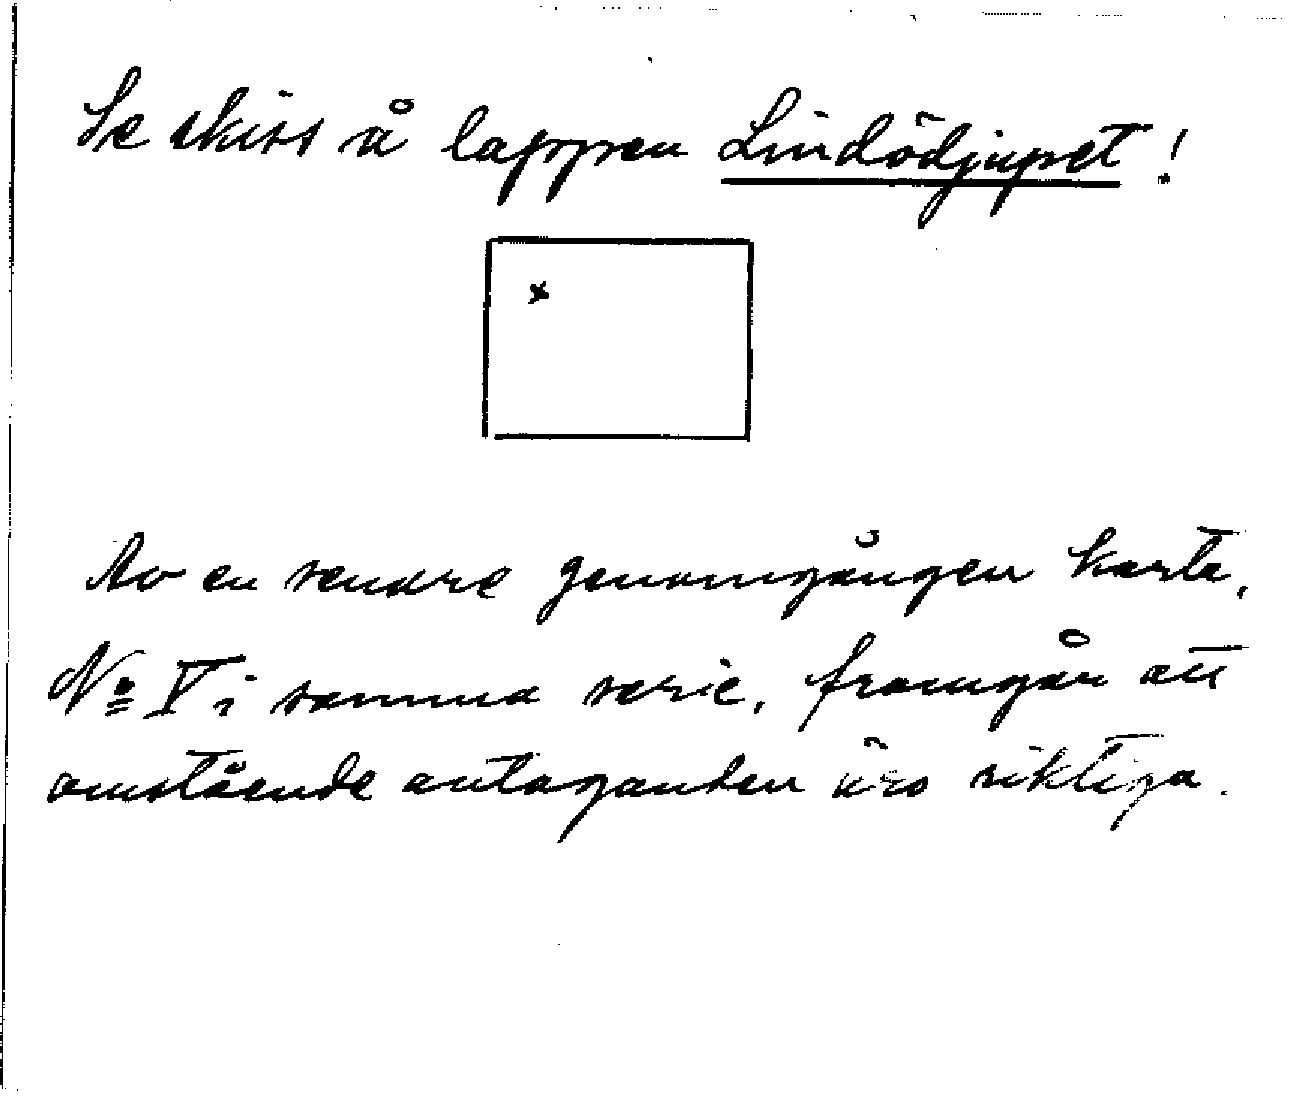 Se skiss å lappen Lindödjupet!
Av en senare genomgången karta,
No V i samma serie, framgår att
omstående antaganden äro riktiga.